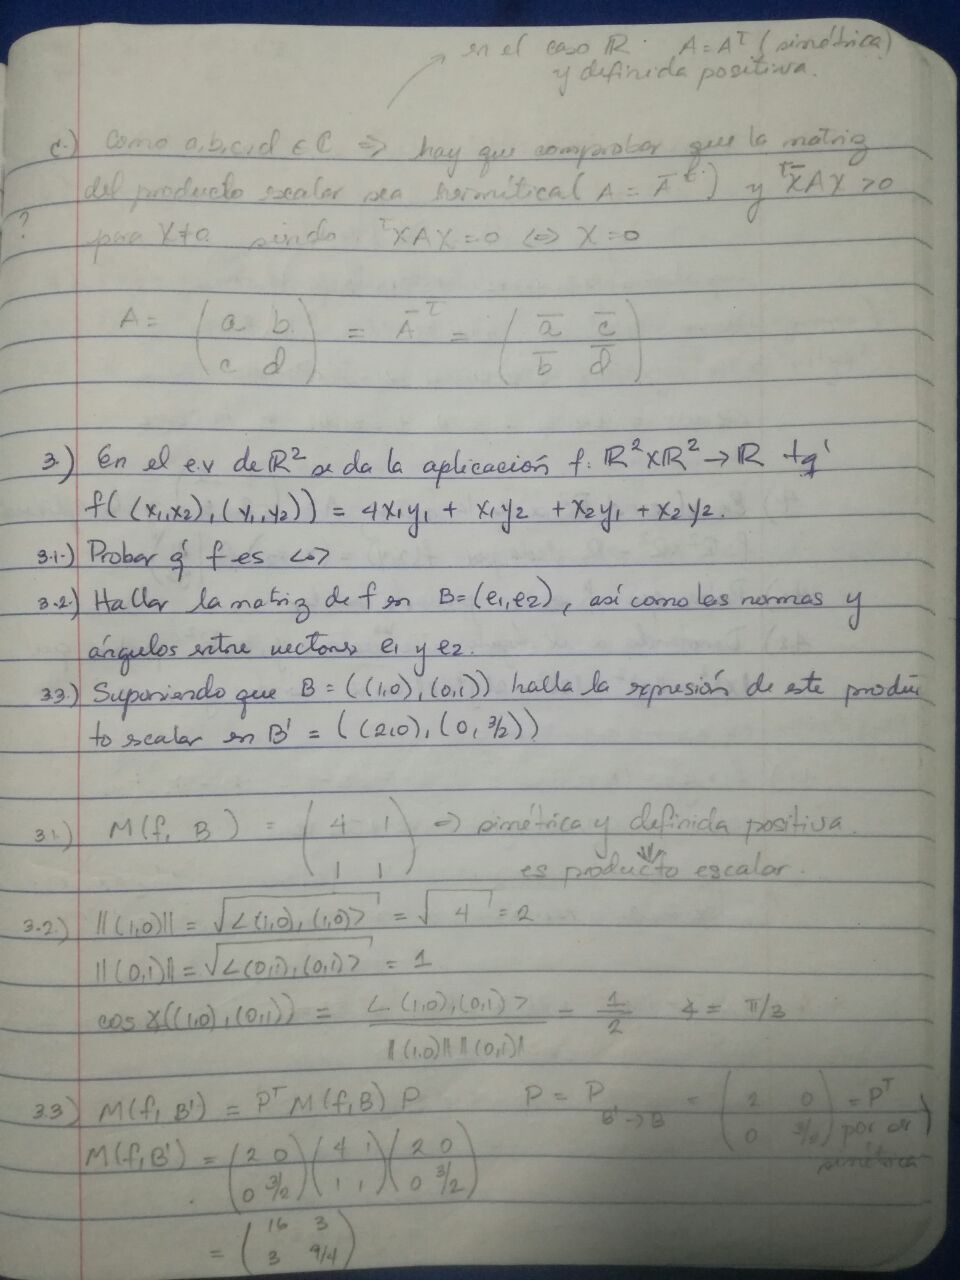 en el caso ℝ. A = Aᵀ (simétrica)
y definida positiva.
c.) Como a,b,c,d ∈ ℂ ⇒ hay que comprobar que la matriz
del producto escalar sea hermítica (A = Āᵗ) y ᵀX̄AX > 0
?
para X≠0 siendo ᵀXAX = 0 ⇔ X = 0
A = (a b; c d) = Āᵀ = (ā c̄; b̄ d̄)
3.) En el e.v de ℝ² se da la aplicación f: ℝ²×ℝ² → ℝ tq'
f((x₁,x₂),(y₁,y₂)) = 4x₁y₁ + x₁y₂ + x₂y₁ + x₂y₂.
3.1.) Probar q' f es <·>
3.2.) Hallar la matriz de f en B=(e₁,e₂), así como las normas y
ángulos entre vectores e₁ y e₂.
3.3.) Suponiendo que B = ((1,0),(0,1)) halla la expresión de este produc
to escalar en B' = ((2,0),(0,3/2))
3.1.) M(f, B) = (4 1; 1 1) ⇒ simétrica y definida positiva.
⇓
es producto escalar.
3.2.) ||(1,0)|| = √<(1,0),(1,0)> = √4 = 2
||(0,1)|| = √<(0,1),(0,1)> = 1
cos ∡((1,0),(0,1)) = <(1,0),(0,1)> / ||(1,0)|| ||(0,1)|| = 1/2 ∡ = π/3
3.3) M(f, B') = Pᵀ M(f,B) P P = P B'→B = (2 0; 0 3/2) = Pᵀ
por ser
simétrica
M(f,B') = (2 0; 0 3/2)(4 1; 1 1)(2 0; 0 3/2)
= (16 3; 3 9/4)